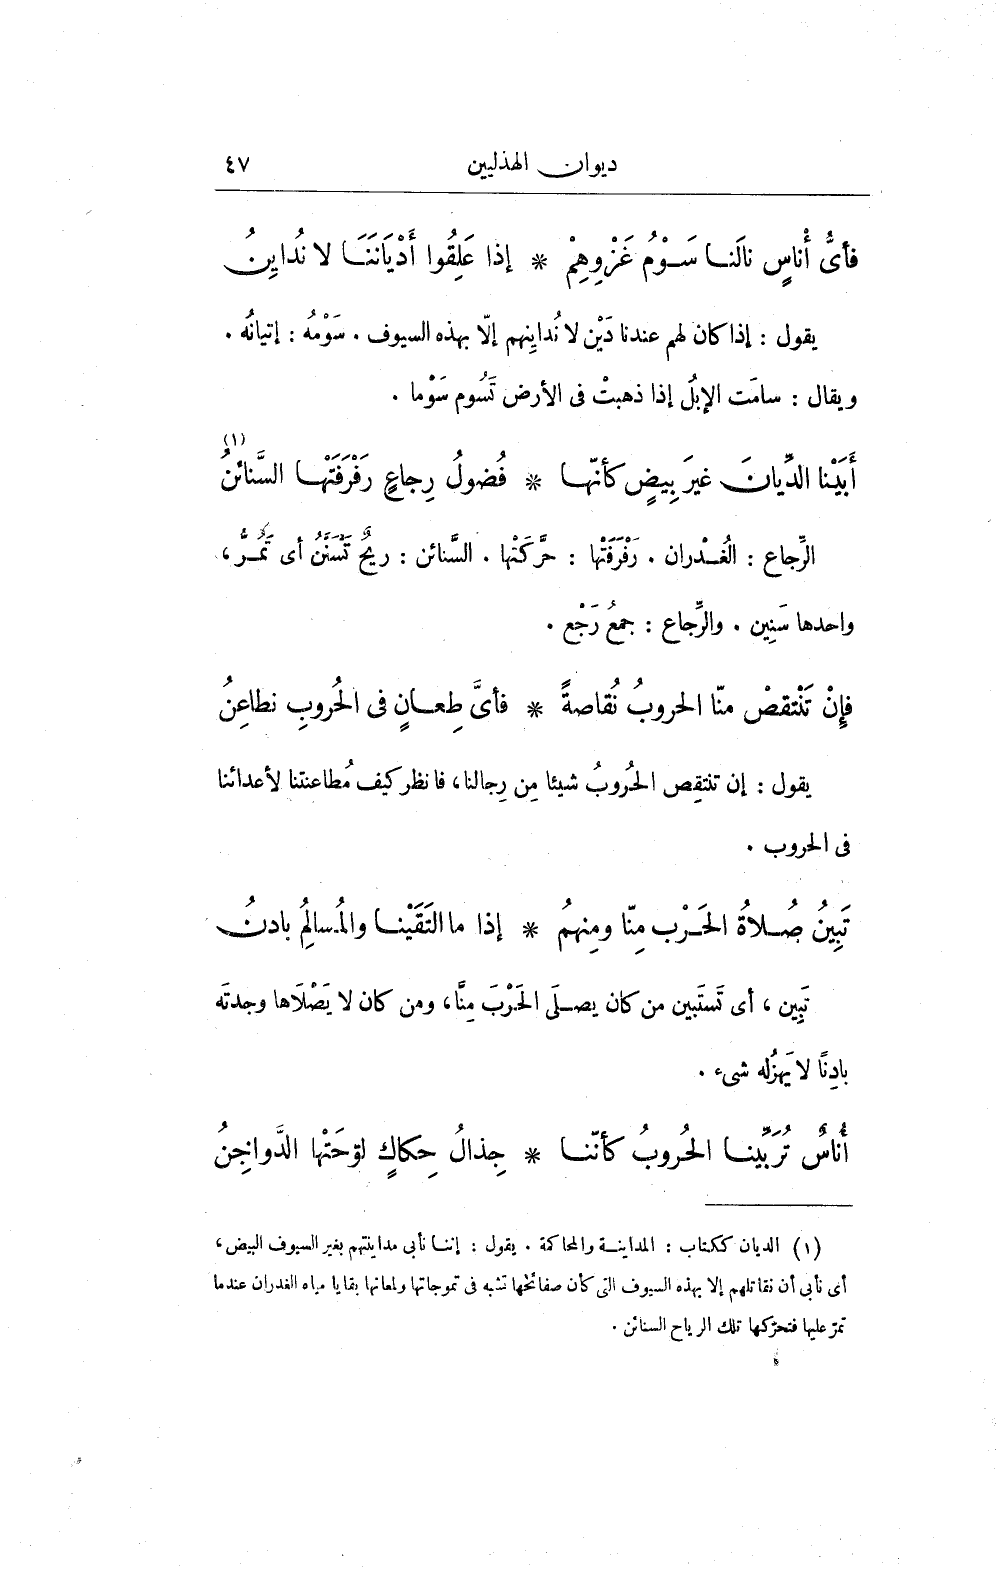 ديوان الهذليين ٤٧
فأىُّ أُناسٍ نالَنا سَوْمُ غَزْوِهِمْ * إذا عَلِقُوا أَدْيَانَنَا لا نُدايِنُ
يقول : إذا كان لهم عندنا دَيْن لا نُدايِنهم إلّا بهذه السيوف . سَوْمُه : إتيانُه .
ويقال : سامَت الإبلُ إذا ذهبتْ فى الأرض تَسُوم سَوْما .
أَبَيْنا الدِّيانَ غيرَ بِيضٍ كأنّها * فُضولُ رِجاعٍ رَفْرَفَتْها السَّنائنُ (١)
الرِّجاع : الغُدْران . رَفْرَفَتْها : حرَّكَتْها . السَّنائن : ريحٌ تَسْتَنُّ أى تَمُرُّ ،
واحدها سَنِين . والرِّجاع : جمعُ رَجْع .
فإنْ تَنْتقصْ منّا الحروبُ نُقاصةً * فأىَّ طِعانٍ فى الحُروبِ نطاعِنُ
يقول : إن تنتقِص الحُروبُ شيئا مِن رِجالنا ، فانظر كيف مُطاعنتنا لأعدائنا
فى الحروب .
تَبِينُ صُلاةُ الحَرْبِ مِنّا ومِنهمُ * إذا ما التَقَيْنا والمُسالِمُ بادنُ
تَبِين ، أى تَستَبين من كان يصلَى الحَرْبَ مِنَّا ، ومن كان لا يَصْلَاها وجدتَه
بادِنًا لا يَهزُله شىء .
أُناسٌ تُرَبِّينا الحُروبُ كأنّنا * جِذالُ حِكاكٍ لوّحَتْها الدَّواجِنُ
(١) الديان ككتاب : المداينة والمحاكمة . يقول : إننا نأبى مداينتهم بغير السيوف البيض ،
أى نأبى أن نقاتلهم إلا بهذه السيوف التى كأن صفائحها تشبه فى تموجاتها ولمعانها بقايا مياه الغدران عندما
تمرّ عليها فتحرّكها تلك الرياح السنائن .